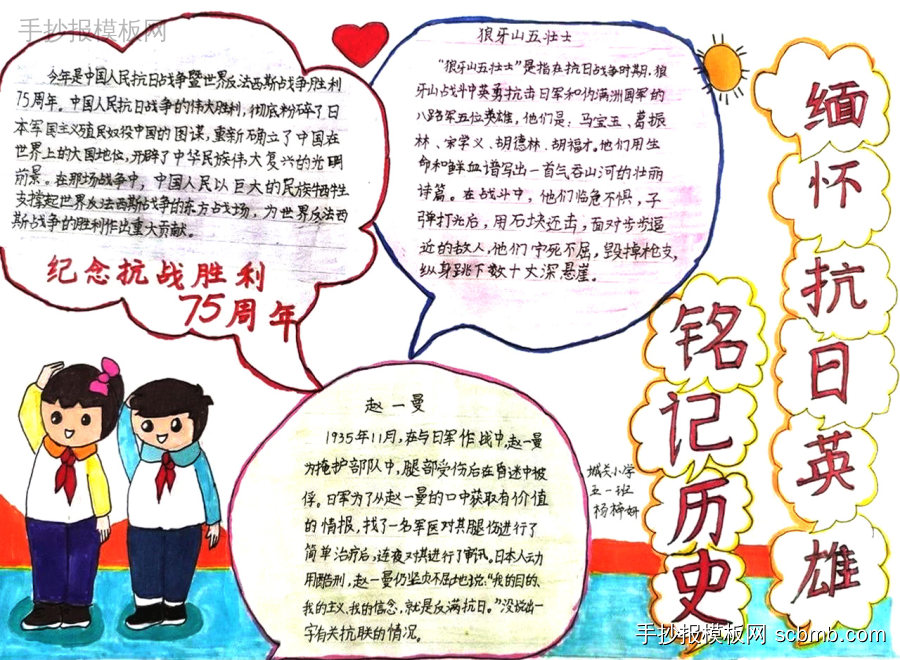 手抄报模板网
今年是中国人民抗日战争暨世界反法西斯战争胜利
75周年。中国人民抗日战争的伟大胜利，彻底粉碎了日
本军国主义殖民奴役中国的图谋，重新确立了中国在
世界上的大国地位，开辟了中华民族伟大复兴的光明
前景。在那场战争中，中国人民以巨大的民族牺牲
支撑起世界反法西斯战争的东方战场，为世界反法西
斯战争的胜利作出重大贡献。
纪念抗战胜利
75周年
狼牙山五壮士
“狼牙山五壮士”是指在抗日战争时期，狼
牙山战斗中英勇抗击日军和伪满洲国军的
八路军五位英雄，他们是：马宝玉、葛振
林、宋学义、胡德林、胡福才。他们用生
命和鲜血谱写出一首气吞山河的壮丽
诗篇。在战斗中，他们临危不惧，子
弹打光后，用石块还击，面对步步逼
近的敌人，他们宁死不屈，毁掉枪支，
纵身跳下数十丈深悬崖。
缅怀抗日英雄
铭记历史
赵一曼
1935年11月，在与日军作战中，赵一曼
为掩护部队中，腿部受伤后在自述中被
俘。日军为了从赵一曼的口中获取有价值
的情报，找了一名军医对其腿伤进行了
简单治疗后，连夜对其进行了审讯。日本人动
用酷刑，赵一曼仍坚贞不屈地说：“我的目的，
我的主义，我的信念，就是反满抗日。”没说出一
字有关抗联的情况。
城关小学
五一班
杨梓妍
手抄报模板网 scbmb.com